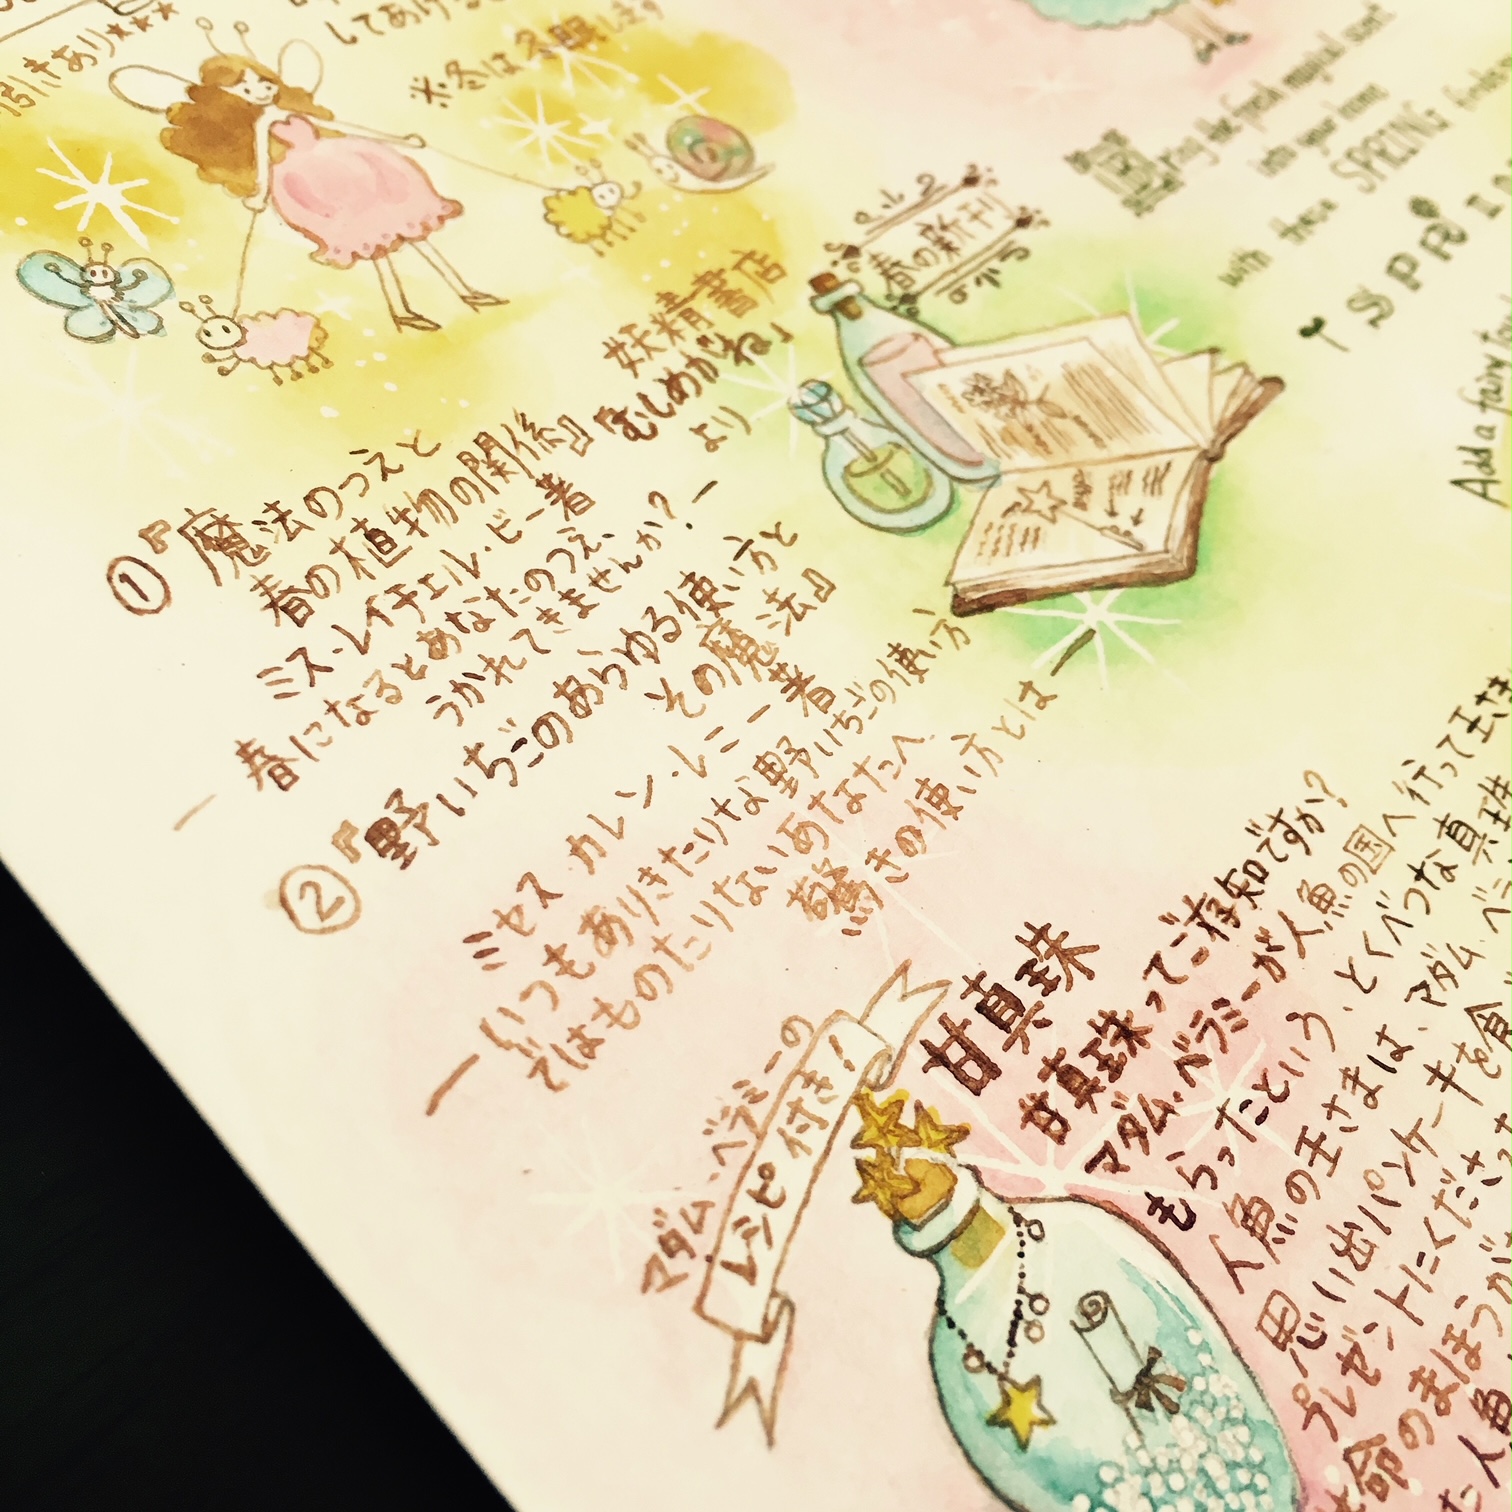 引きあり★★★
してあげる
※冬は冬眠します
妖精書店
むしめがね」
より
①『魔法のつえと
春の植物の関係』
ミス・レイチェル・ビー著
― 春になるとあなたのつえ、
うかれてきませんか？―
②『野いちごのあらゆる使い方と
その魔法』
ミセス・カレン・レミー著
― いつもありきたりな野いちごの使い方
ではものたりないあなたへ
驚きの使い方とは ―
春の新刊
the fresh magical scent
into your rooms
with these SPRING
Add a fairy
マダム・ベラミーの
レシピ付き！
甘真珠
甘真珠ってご存知ですか？
マダム・ベラミーが人魚の国へ行って王さま
もらったという、とくべつな真珠
人魚の王さまは、マダム・ベラ
思い出パンケーキを食
プレゼントにくださった
命のまほうが
た人魚